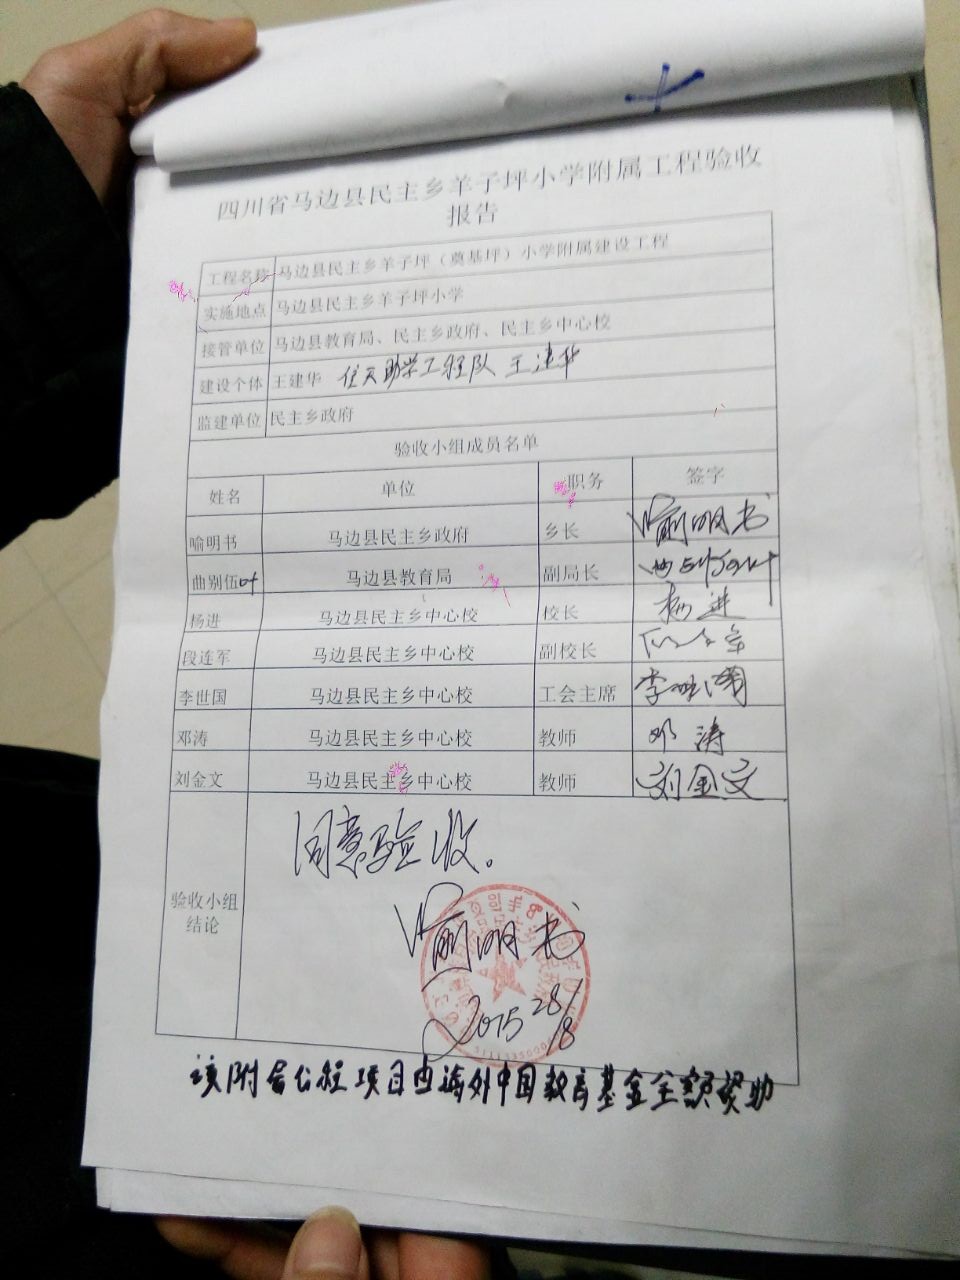 四川省马边县民主乡羊子坪小学附属工程验收
报告
工程名称 马边县民主乡羊子坪（奠基坪）小学附属建设工程
实施地点 马边县民主乡羊子坪小学
接管单位 马边县教育局、民主乡政府、民主乡中心校
建设个体 王建华 任天助学工程队 王建华
监建单位 民主乡政府
验收小组成员名单
姓名 单位 职务 签字
喻明书 马边县民主乡政府 乡长 喻明书
曲别伍叶 马边县教育局 副局长 曲别伍叶
杨进 马边县民主乡中心校 校长 杨进
段连军 马边县民主乡中心校 副校长
李世国 马边县民主乡中心校 工会主席 李世国
邓涛 马边县民主乡中心校 教师 邓涛
刘金文 马边县民主乡中心校 教师 刘金文
验收小组
结论
同意验收。
喻明书
2015 28/8
该附属公程项目由海外中国教育基金全额资助